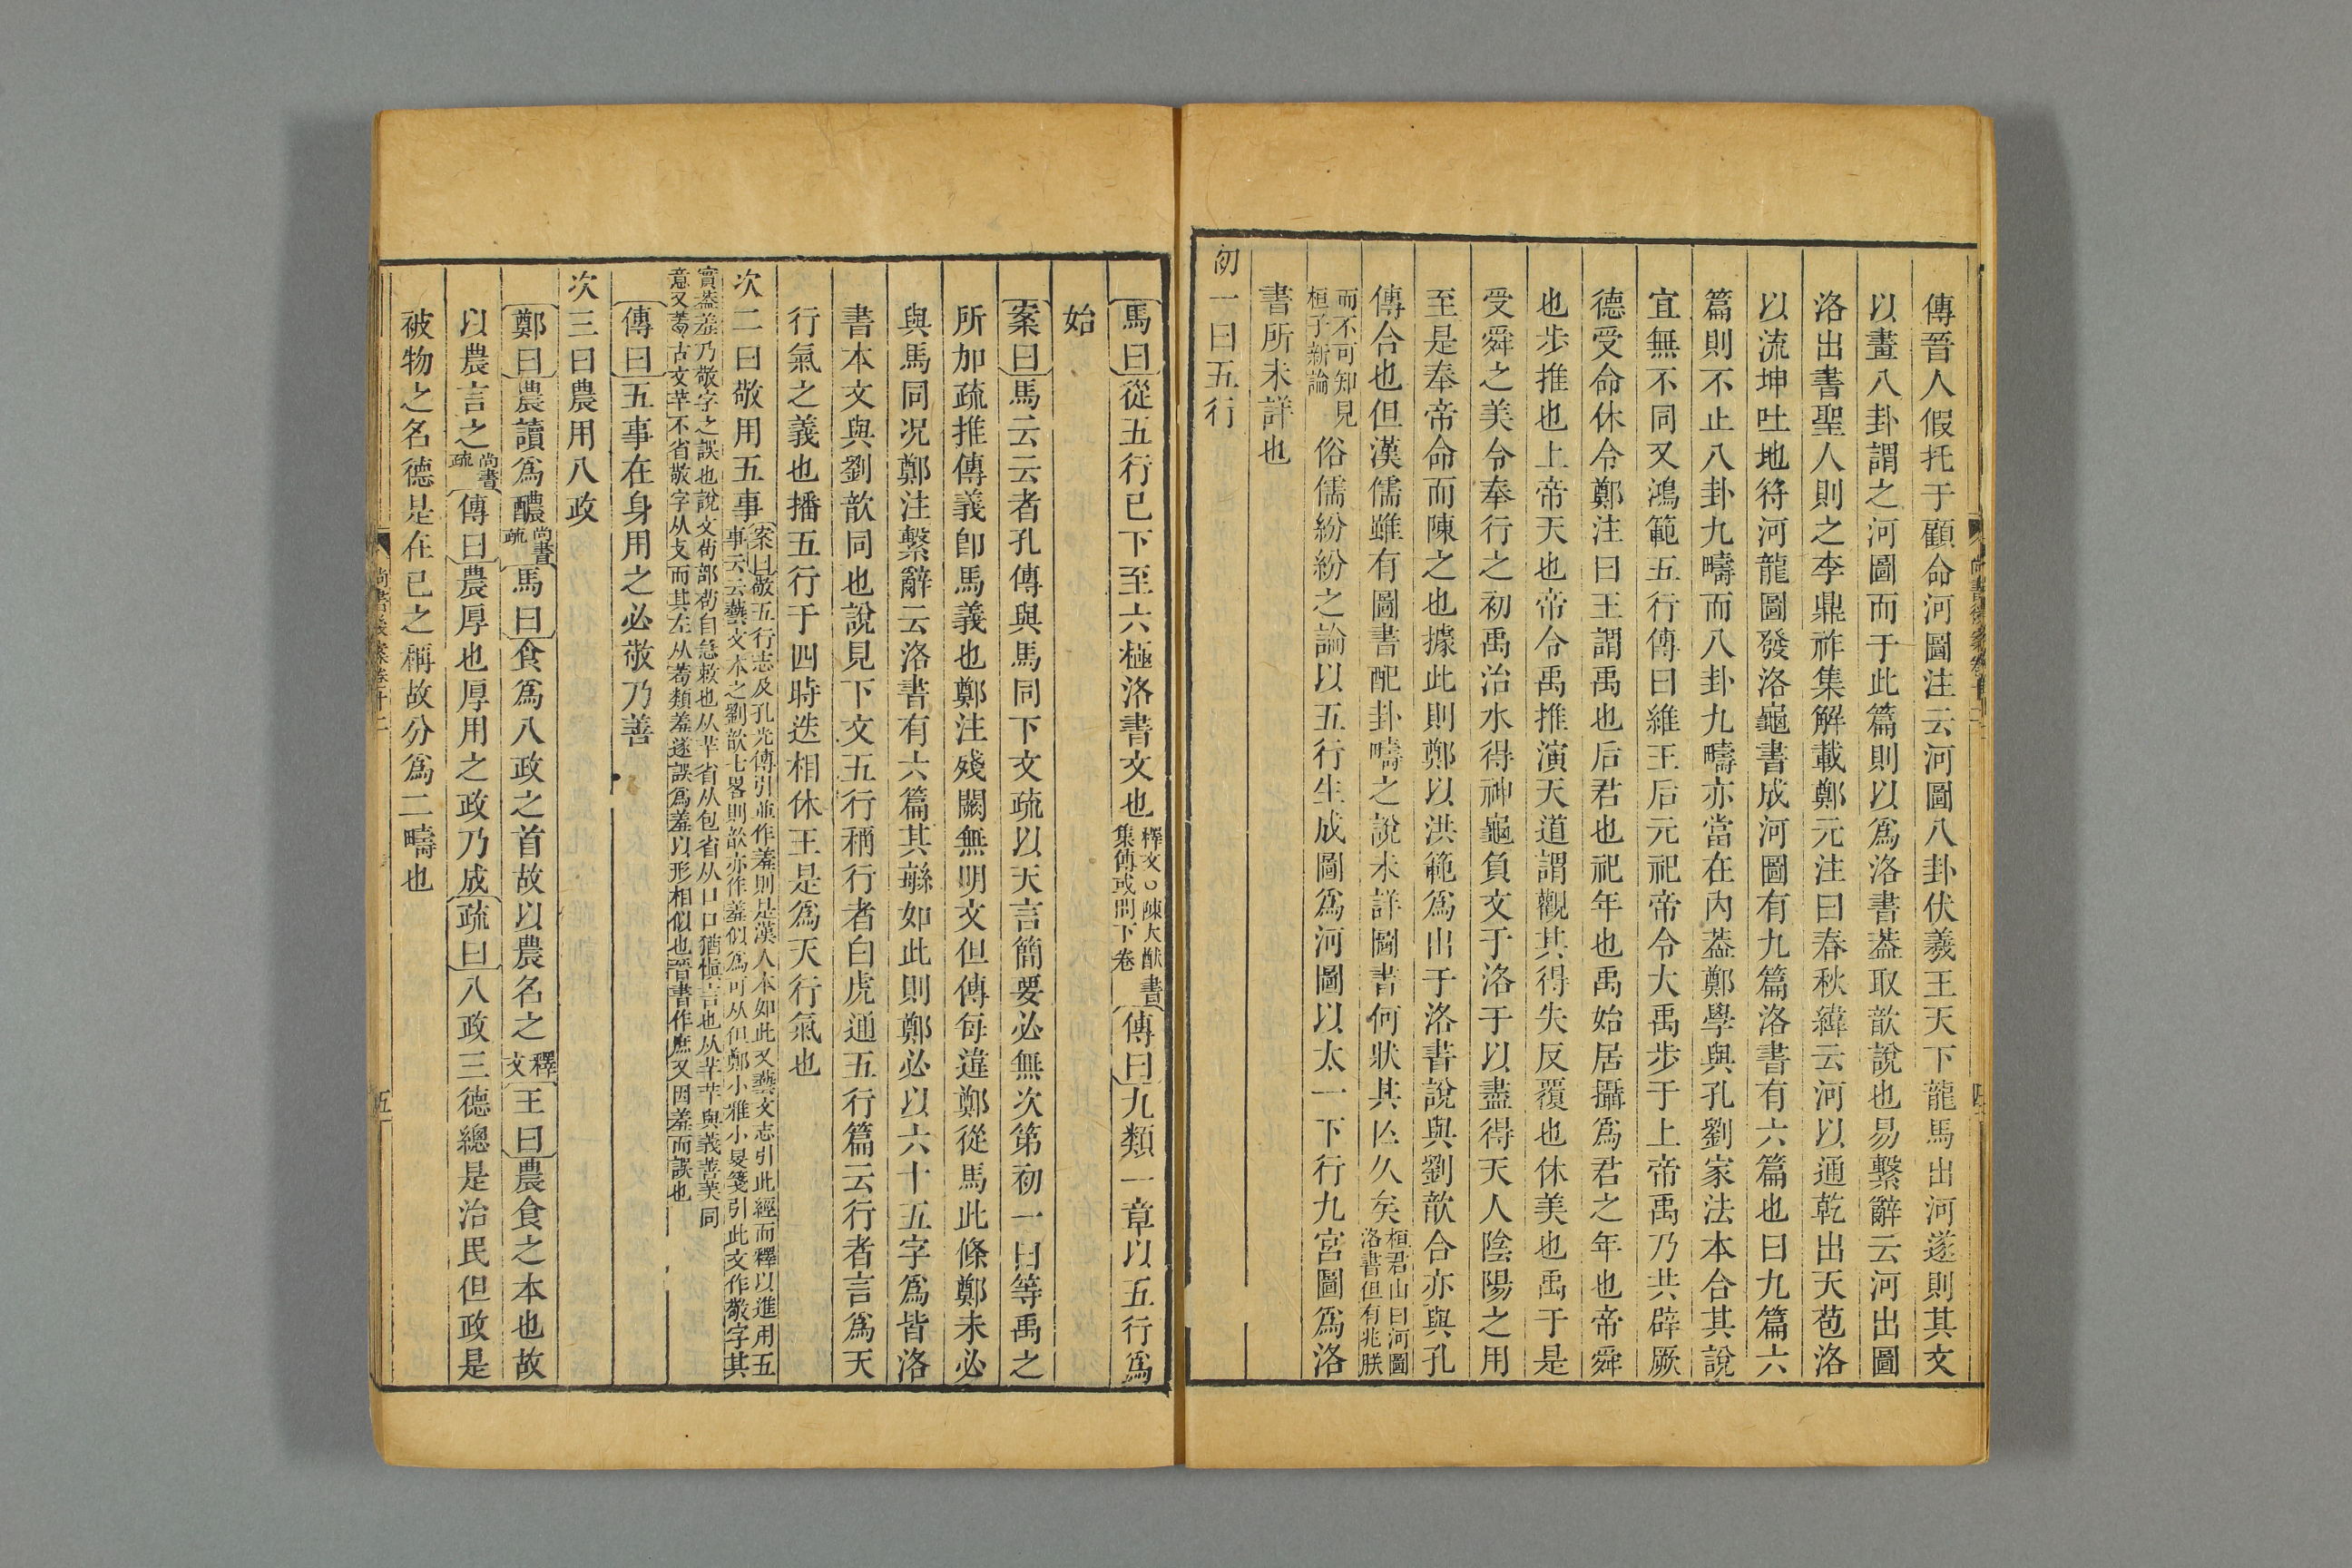 傳晉人假托于顧命河圖注云河圖八卦伏羲王天下龍馬出河遂則其文
以畫八卦謂之河圖而于此篇則以爲洛書葢取歆說也易繫辭云河出圖
洛出書聖人則之李鼎祚集解載鄭元注曰春秋緯云河以通乾出天苞洛
以流坤吐地符河龍圖發洛龜書成河圖有九篇洛書有六篇也曰九篇六
篇則不止八卦九疇而八卦九疇亦當在內葢鄭學與孔劉家法本合其說
宜無不同又鴻範五行傳曰維王后元祀帝令大禹步于上帝禹乃共辟厥
德受命休令鄭注曰王謂禹也后君也祀年也禹始居攝爲君之年也帝舜
也步推也上帝天也帝令禹推演天道謂觀其得失反覆也休美也禹于是
受舜之美令奉行之初禹治水得神龜負文于洛于以盡得天人陰陽之用
至是奉帝命而陳之也據此則鄭以洪範爲出于洛書說與劉歆合亦與孔
傳合也但漢儒雖有圖書配卦疇之說未詳圖書何狀其亾久矣桓君山曰河圖
洛書但有兆朕
而不可知見
桓子新論
俗儒紛紛之論以五行生成圖爲河圖以太一下行九宮圖爲洛
書所未詳也
初一曰五行
尚書後案卷十二
四
馬曰從五行已下至六極洛書文也釋文○陳大猷書
集傳或問下卷
傳曰九類一章以五行爲
始
案曰馬云云者孔傳與馬同下文疏以天言簡要必無次第初一曰等禹之
所加疏推傳義卽馬義也鄭注殘闕無明文但傳每違鄭從馬此條鄭未必
與馬同况鄭注繫辭云洛書有六篇其緐如此則鄭必以六十五字爲皆洛
書本文與劉歆同也說見下文五行稱行者白虎通五行篇云行者言爲天
行氣之義也播五行于四時迭相休王是爲天行氣也
次二曰敬用五事案曰敬五行志及孔光傳引並作羞則是漢人本如此又藝文志引此經而釋以進用五
事云云藝文本之劉歆七畧則歆亦作羞似爲可从但鄭小雅小旻箋引此文作敬字其
實葢羞乃敬字之誤也說文茍部茍自急敕也从𦍌省从包省从口口猶愼言也从𦍌𦍌與義善美同
意又𦮔古文𦍌不省敬字从攴而其左从𦮔類羞遂誤爲羞以形相似也晉書作庶又因羞而誤也
傳曰五事在身用之必敬乃善
次三曰農用八政
鄭曰農讀爲醲尚書
疏
馬曰食爲八政之首故以農名之釋
文
王曰農食之本也故
以農言之尚書
疏
傳曰農厚也厚用之政乃成疏曰八政三德總是治民但政是
被物之名德是在已之稱故分爲二疇也
尚書後案卷十二
五